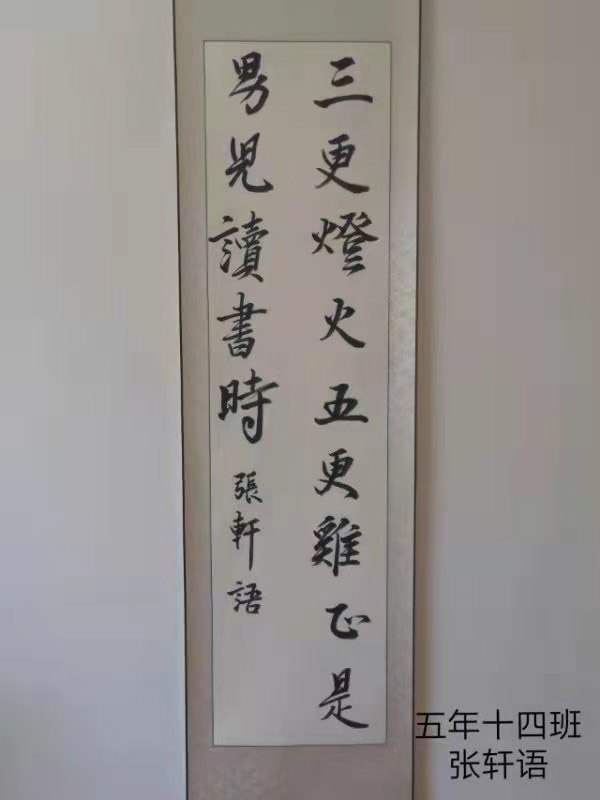 三更燈火五更雞正是
男兒讀書時
張軒語
五年十四班
张轩语